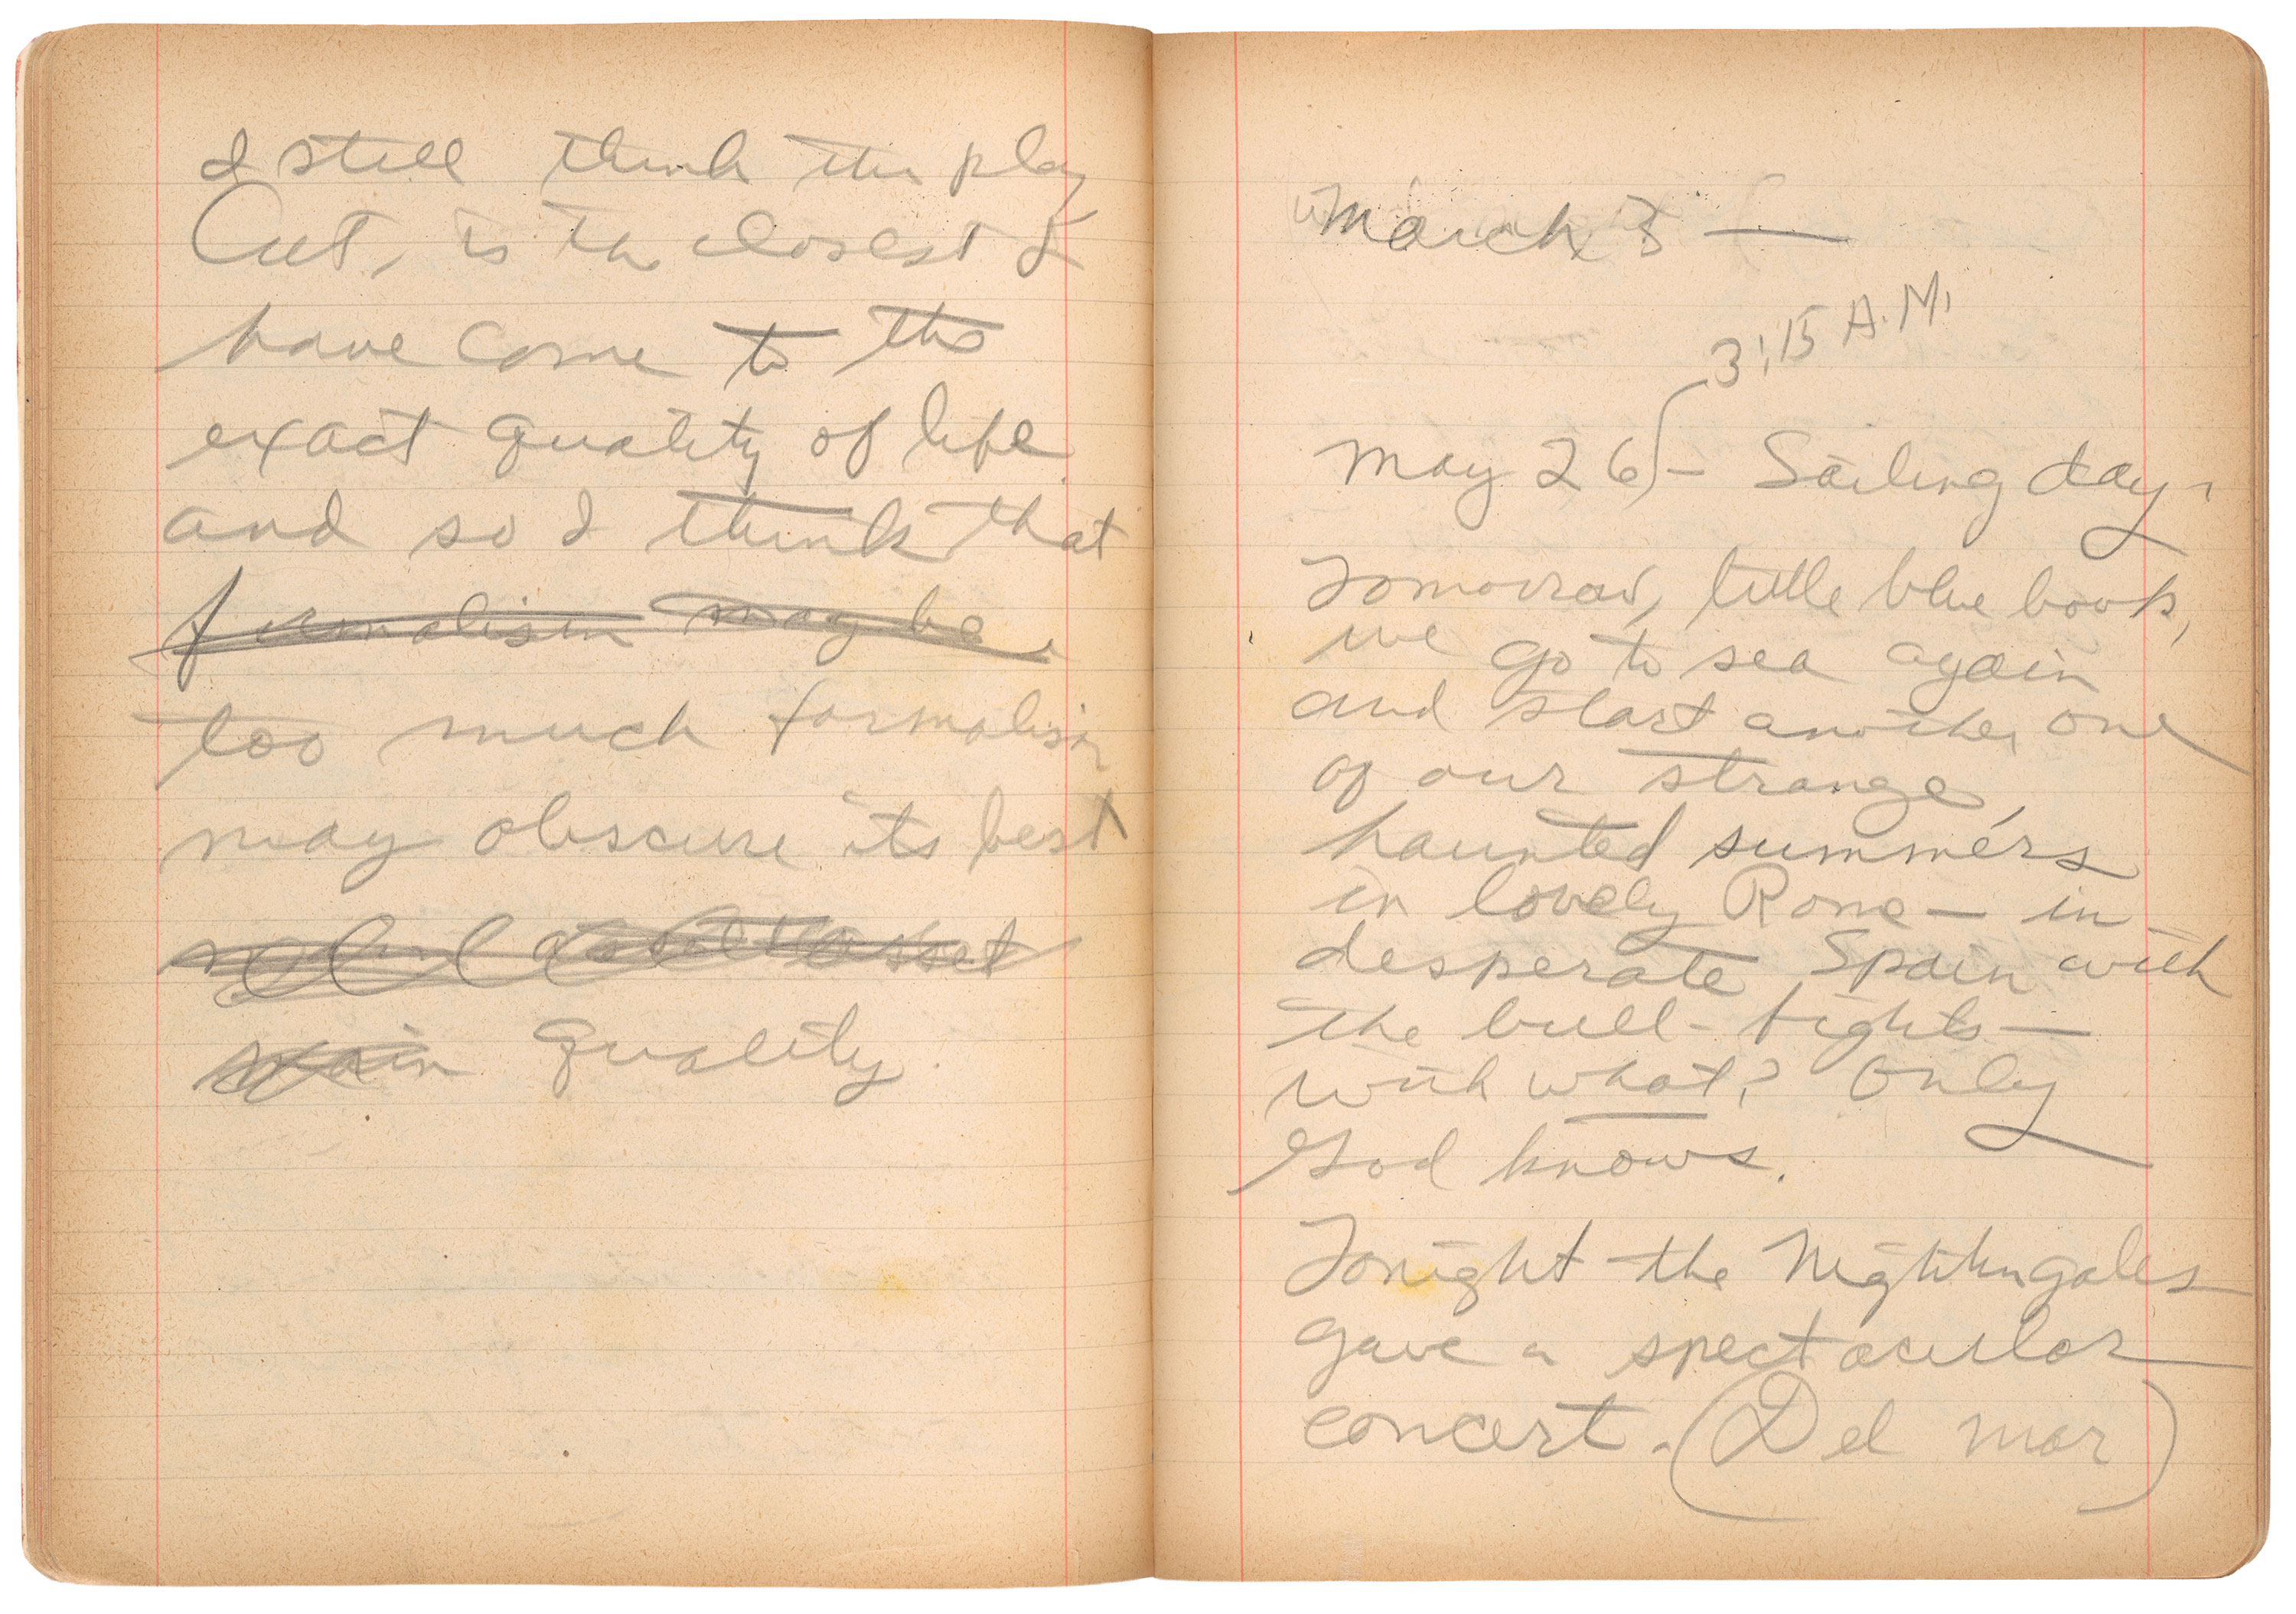 I still think the play
Cat, is the closest I
have come to the
exact quality of life
and so I think that
formalism may be
too much formalism
may obscure its best
asset
main quality.
March 3 —
3:15 A.M.
May 26 — Sailing day.
Tomorrow, little blue book,
we go to sea again
and start another one
of our strange,
haunted summers
in lovely Rome — in
desperate Spain with
the bull-fights —
with what? Only
God knows.
Tonight the Nightingales
gave a spectacular
concert. (Del mar)